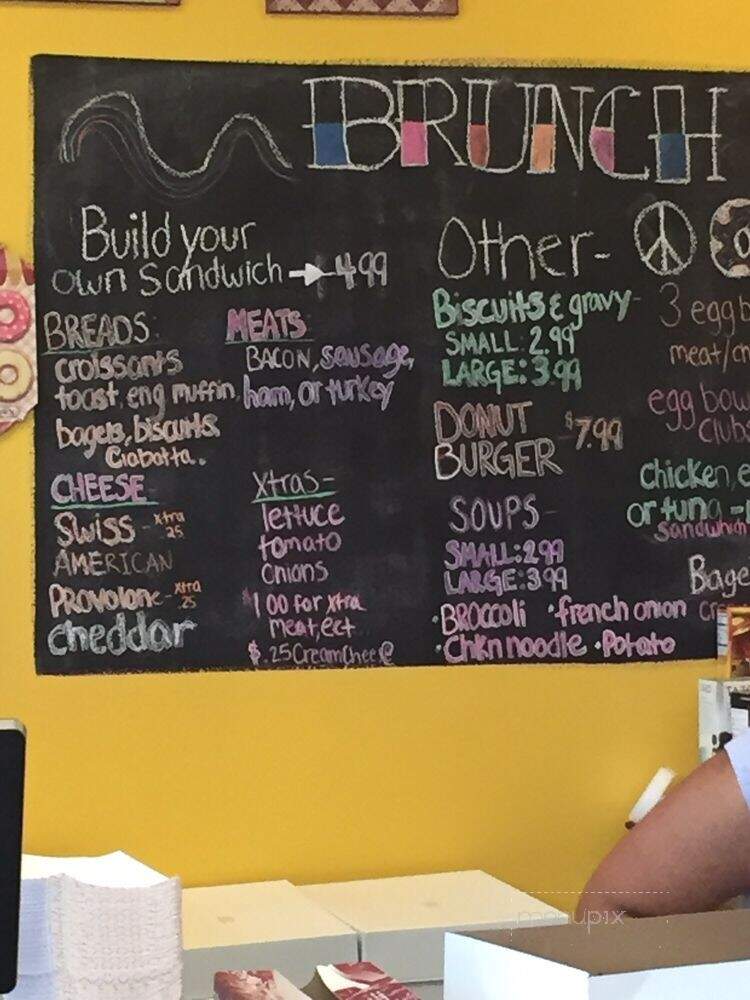 BRUNCH
Build your
own sandwich 4.99
BREADS:
croissants
toast, eng muffin,
bagels, biscuits
Ciabatta..
MEATS:
BACON, sausage,
ham, or turkey
CHEESE-
Swiss - xtra .25
AMERICAN
Provolone- xtra .25
cheddar
Xtras-
lettuce
tomato
Onions
$1.00 for xtra
meat, ect
$.25 Cream Cheese
Other-
Biscuits & gravy-
SMALL: 2.99
LARGE: 3.99
DONUT
BURGER -$7.99
SOUPS-
SMALL: 2.99
LARGE: 3.99
• BROCColi • french onion
• Chkn noodle • Potato
3 egg
meat/
egg
chicken,
or tuna -
Sandwich
menupix